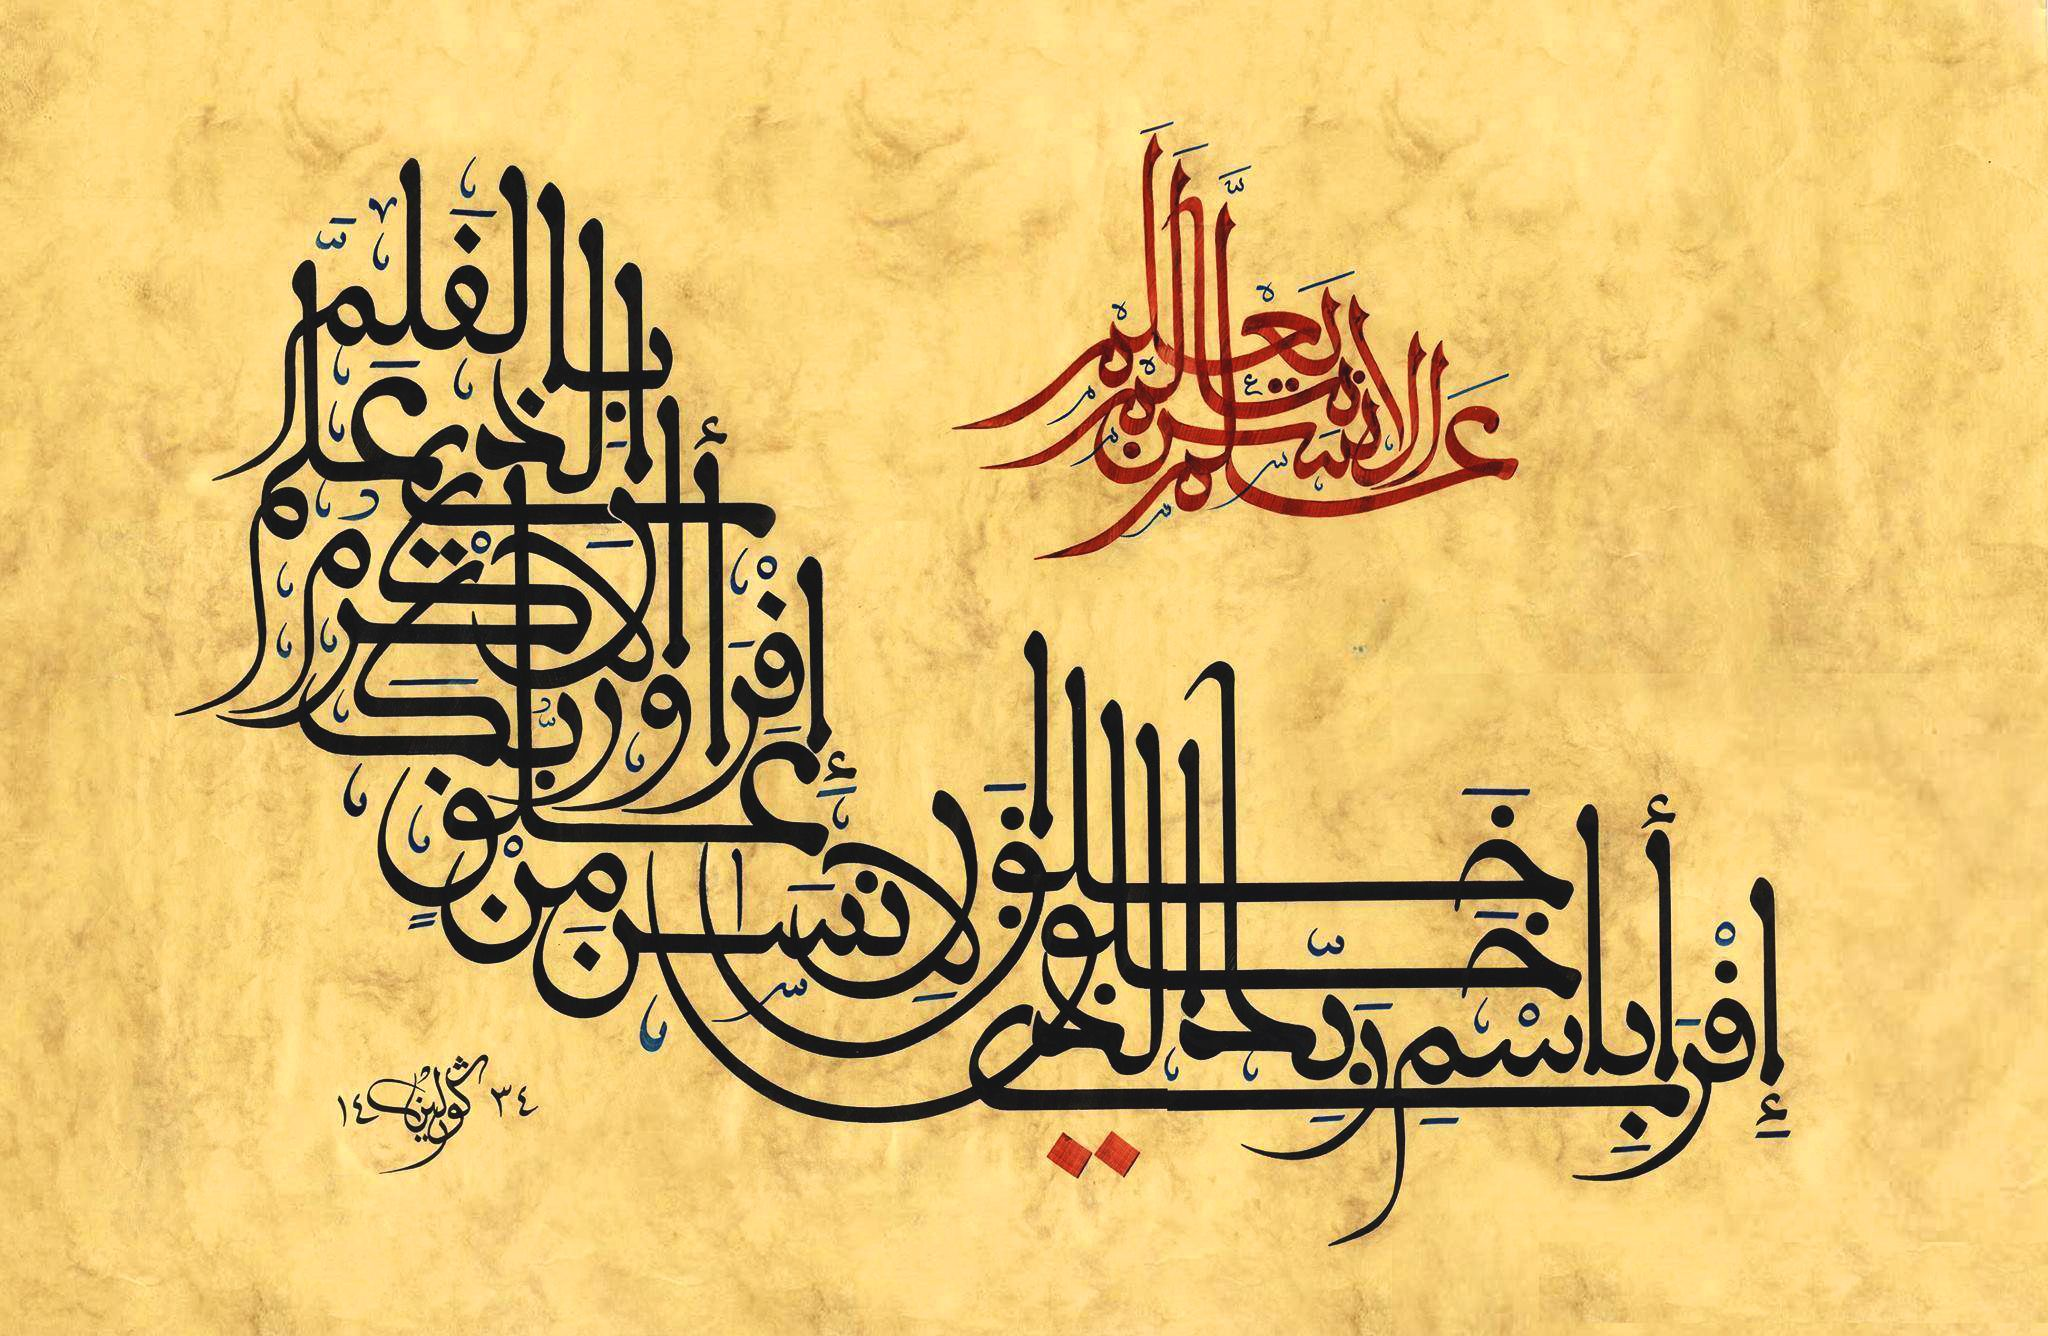 إِقْرَأْ بِاسْمِ رَبِّكَ الَّذِي خَلَقَ
خَلَقَ الْإِنْسَانَ مِنْ عَلَقٍ
إِقْرَأْ وَرَبُّكَ الْأَكْرَمُ
الَّذِي عَلَّمَ بِالْقَلَمِ
عَلَّمَ الْإِنْسَانَ مَا لَمْ يَعْلَمْ
١٤٣٤